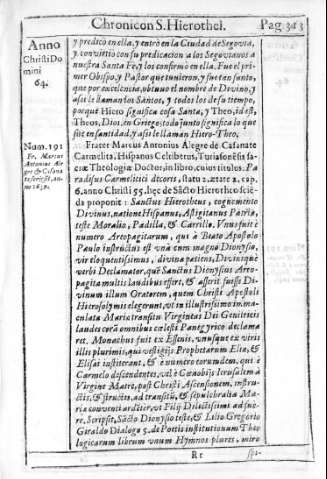 Chronicon S. Hierothei. Pag 313
Anno
Christi Do
mini
64.
y predicò en ella, y entrò en la Ciudad de Segovia,
y convirtiò con su predicacion a los Segovianos a
nuestra Santa Fe, y los confirmò en ella. Fue el pri-
mer Obispo, y Pastor que tuvieron, y fue tan santo,
que por excelencia, obtuvo el nombre de Divino, y
assi le llamaron Santos, y todos los de su tiempo,
porquè Hiero significa cosa Santa, y Theo, id est,
Theos, Dios, en Griego: todo junto significa lo que
fue en santidad, y assi le llamã Hiero-Theo.
Num. 191
Fr. Marcus
Antonius Ale
gre & Casana
te
no 1630.
Frater Marcus Antonius Alegre de Casanate
Carmelita, Hispanus Celtiberus, Turiasonẽsis sa-
cræ Theologiæ Doctor, in libro, cuius titulus. Pa
radisus Carmelitici decoris, statu 2. ætate 2. cap.
6. anno Christi 55. hęc de Sãcto Hierotheo sciẽ-
da proponit: Sanctus Hierotheus, cognomento
Divinus, natione Hispanus, Astigitanus Patria,
teste Moralio, Padilla, & Carrillo. Vnus fuit è
numero Areopagitarum, qui à Beato Apostolo
Paulo instructus est vnà cum magno Dionysio,
vir eloquentissimus, divina patiens, Divinique
verbi Declamator, què Sanctus Dionysius Areo-
pagita multis laudibus effert, & asserit fuisse Di-
vinum illum Oratorem, quem Christi Apostoli
Hierosolymis elegerunt, vt in illustrissimo im-
culata Mariæ transitu Virginius Dei Genitricis
laudes corã omnibus cœlesti Panegyrico declama
ret. Monachus fuit ex Essenis, vnusque ex viris
illis plurimis, qui vestigijs Prophetarum Elia, &
Elisai institerant, & è numero eorumdem, qui è
Carmelo descendentes, vel è Cœnobijs Ierusalem à
Virgine Matre, post Christi Ascensionem, instru-
cti, & structis, ad transitũ, & sepulchralia Ma-
riæ conventi ardẽter, vt Filij Dilectissimi adfue-
re. Scripsit, Sãcto Dionysio teste, & Lilio Gregorio
Giraldo Dialogo 5. de Poetis institutionum Theo
logicarum librum vnum Hymnos plures, miro
Rr